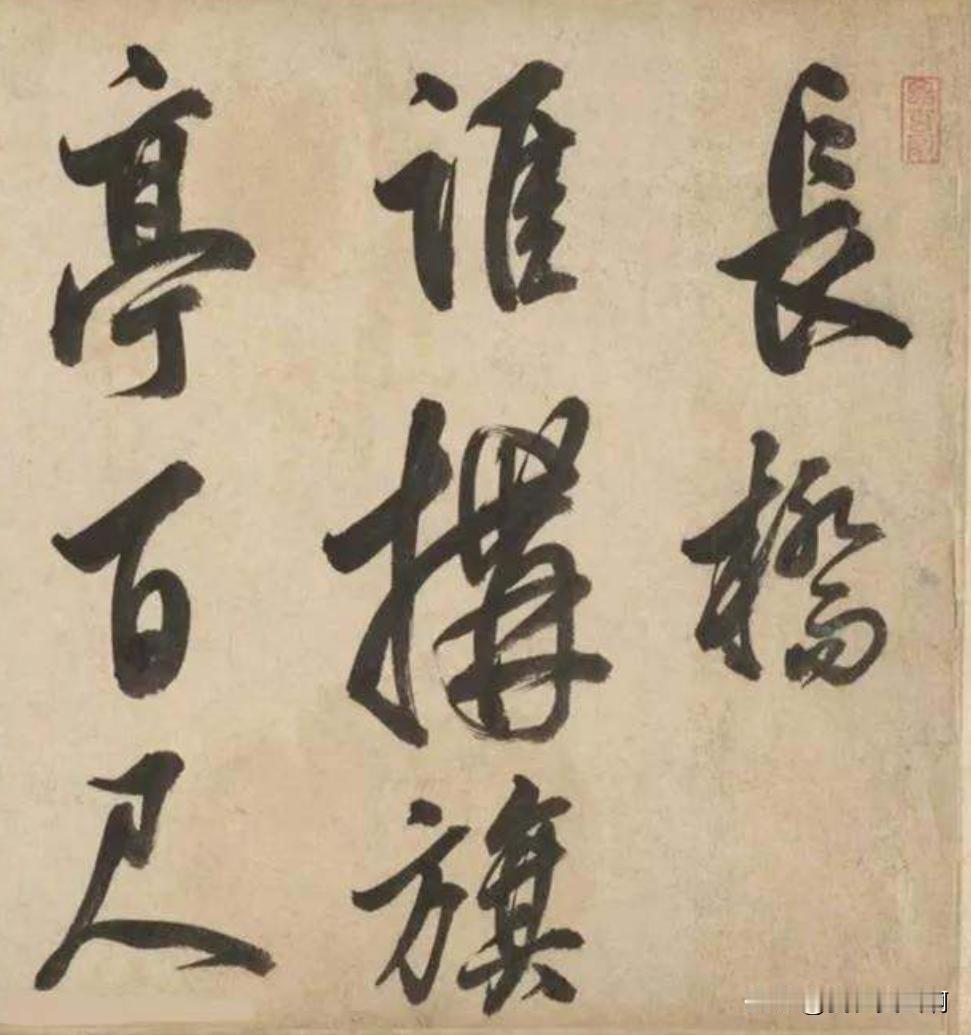 長橋
誰構旗
亭百尺